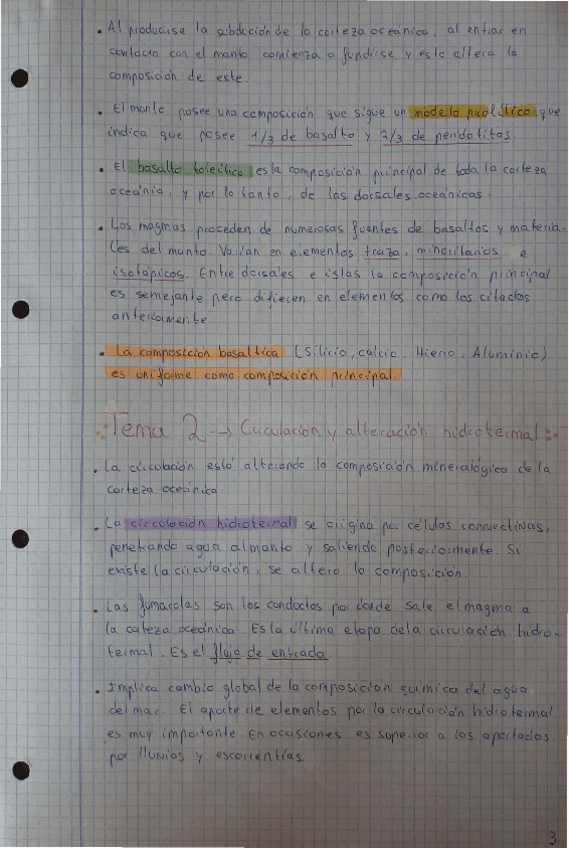 • Al producirse la subdución de la corteza oceánica, al entrar en
contacto con el manto comienza a fundirse y esto altera la
composición de este.
• El manto posee una composición que sigue un modelo picolítico, que
indica que posee 1/3 de basalto y 2/3 de peridotitas
• El basalto toleítico es la composición principal de toda la corteza
oceánia, y por lo tanto, de las dorsales oceánicas.
• Los magmas proceden de numerosas fuentes de basaltos y materia-
les del manto. Varían en elementos traza, minoritarios e
isotópicos. Entre dorsales e islas la composición principal
es semejante pero difieren en elementos como los citados
anteriormente.
• La composición basaltica (Silicio, calcio, Hierro, Aluminio)
es uniforme como composición principal.
Tema 2 → Circulación y alteración hidrotermal
• La circulación está alterando la composición mineralógica de la
corteza oceánica.
• La circulación hidrotermal se origina por células convectivas,
penetrando agua al manto y saliendo posteriormente. Si
existe la circulación, se altera la composición.
• Las fumarolas son los conductos por donde sale el magma a
la corteza oceánica. Es la última etapa de la circulación hidro-
termal. Es el flujo de entrada.
• Implica cambio global de la composición química del agua
del mar. El aporte de elementos por la circulación hidrotermal
es muy importante. En ocasiones es superior a los aportados
por lluvias y escorrentías.
3